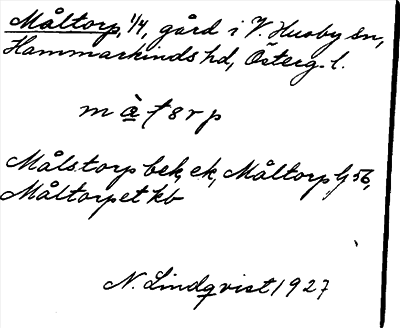 Måltorp, 1/4, gård i V. Husby sn,
Hammarkinds hd, Österg. l.
Målstorp bek, ek, Måltorp G 56,
Måltorpet kb
N. Lindqvist 1927